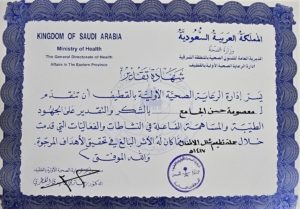 KINGDOM OF SAUDI ARABIA
Ministry of Health
The General Directorate of Health
Affairs in The Eastern Province
المملكة العربية السعودية
وزارة الصحة
المديرية العامة للشئون الصحية بالمنطقة الشرقية
شهادة تقدير
يسر إدارة الرعاية الصحية الأولية بالقطيف أن تتقدم
معصومة حسن الجامع بالشكر والتقدير على الجهود
الطيبة والمساهمة الفاعلة في النشاطات والفعاليات التي قدمت
خلال حملة تطعيم شلل الأطفال مما كان له الأثر البالغ في تحقيق الأهداف المرجوة.
والله الموفق